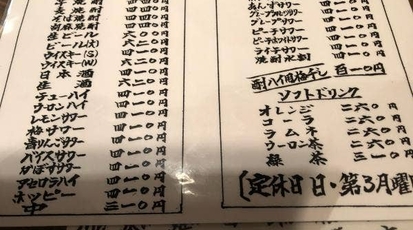 焼酎 四四〇円
そば焼酎 四四〇円
胡麻焼酎 四四〇円
生ビール 六〇〇円
ビール(大) 六二〇円
ウイスキー(S) 四一〇円
ウイスキー(W) 六二〇円
日本酒 四一〇円
生酒 六二〇円
チューハイ 四一〇円
ウーロンハイ 四一〇円
レモンサワー 四一〇円
梅サワー 四一〇円
青りんごサワー 四一〇円
バイスサワー 四一〇円
かぼすサワー 四一〇円
アセロラハイ 四一〇円
ホッピー 四一〇円
中 三一〇円
あんずサワー
グレープフルーツサワー
グレープサワー
ピーチサワー
ピーチホワイトサワー
ライチサワー
焼酎水割
酎ハイ用梅干し 百一〇円
ソフトドリンク
オレンジ 二六〇円
コーラ 二六〇円
ラムネ 二六〇円
ウーロン茶 二六〇円
緑茶 三一〇円
[定休日 日・第3月曜